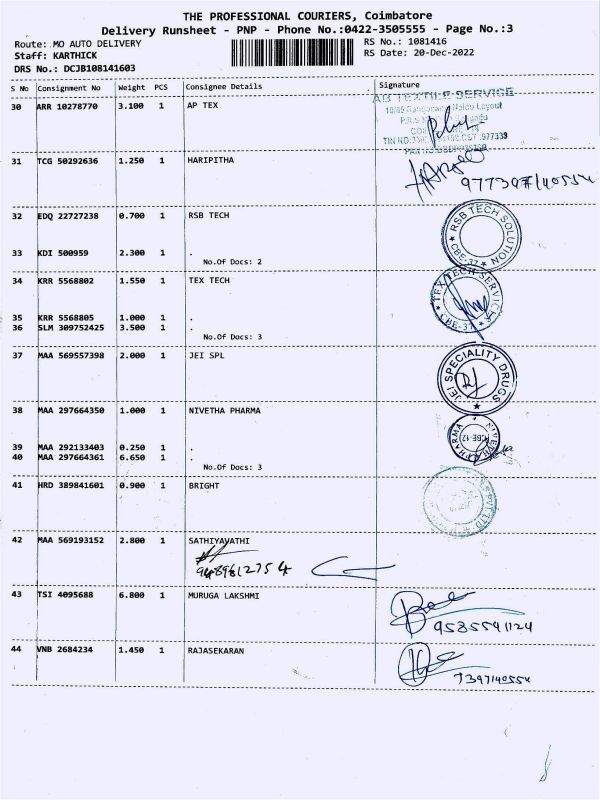 THE PROFESSIONAL COURIERS, Coimbatore
Delivery Runsheet - PNP - Phone No.:0422-3505555 - Page No.:3
Route: MO AUTO DELIVERY RS No.: 1081416
Staff: KARTHICK RS Date: 20-Dec-2022
DRS No.: DCJB108141603
S No Consignment No Weight PCS Consignee Details Signature
30 ARR 10278770 3.100 1 AP TEX
AB TEXTILE SERVICE
31 TCG 50292636 1.250 1 HARIPITHA
32 EDQ 22727238 0.700 1 RSB TECH
RSB TECH SOLUTION
CBE-37
33 KDI 500959 2.300 1 .
No.Of Docs: 2
34 KRR 5568802 1.550 1 TEX TECH
TEX TECH SERVICE
CBE-37
35 KRR 5568805 1.000 1 .
36 SLM 309752425 3.500 1 .
No.Of Docs: 3
37 MAA 569557398 2.000 1 JEI SPL
JEI SPECIALITY DRUGS
38 MAA 297664350 1.000 1 NIVETHA PHARMA
NIVETHA PHARMA
CBE-12
39 MAA 292133403 0.250 1 .
40 MAA 297664361 6.650 1 .
No.Of Docs: 3
41 HRD 389841601 0.900 1 BRIGHT
42 MAA 569193152 2.800 1 SATHIYAVATHI
9489612754
43 TSI 4095688 6.800 1 MURUGA LAKSHMI
9585591124
44 VNB 2684234 1.450 1 RAJASEKARAN
7397140554